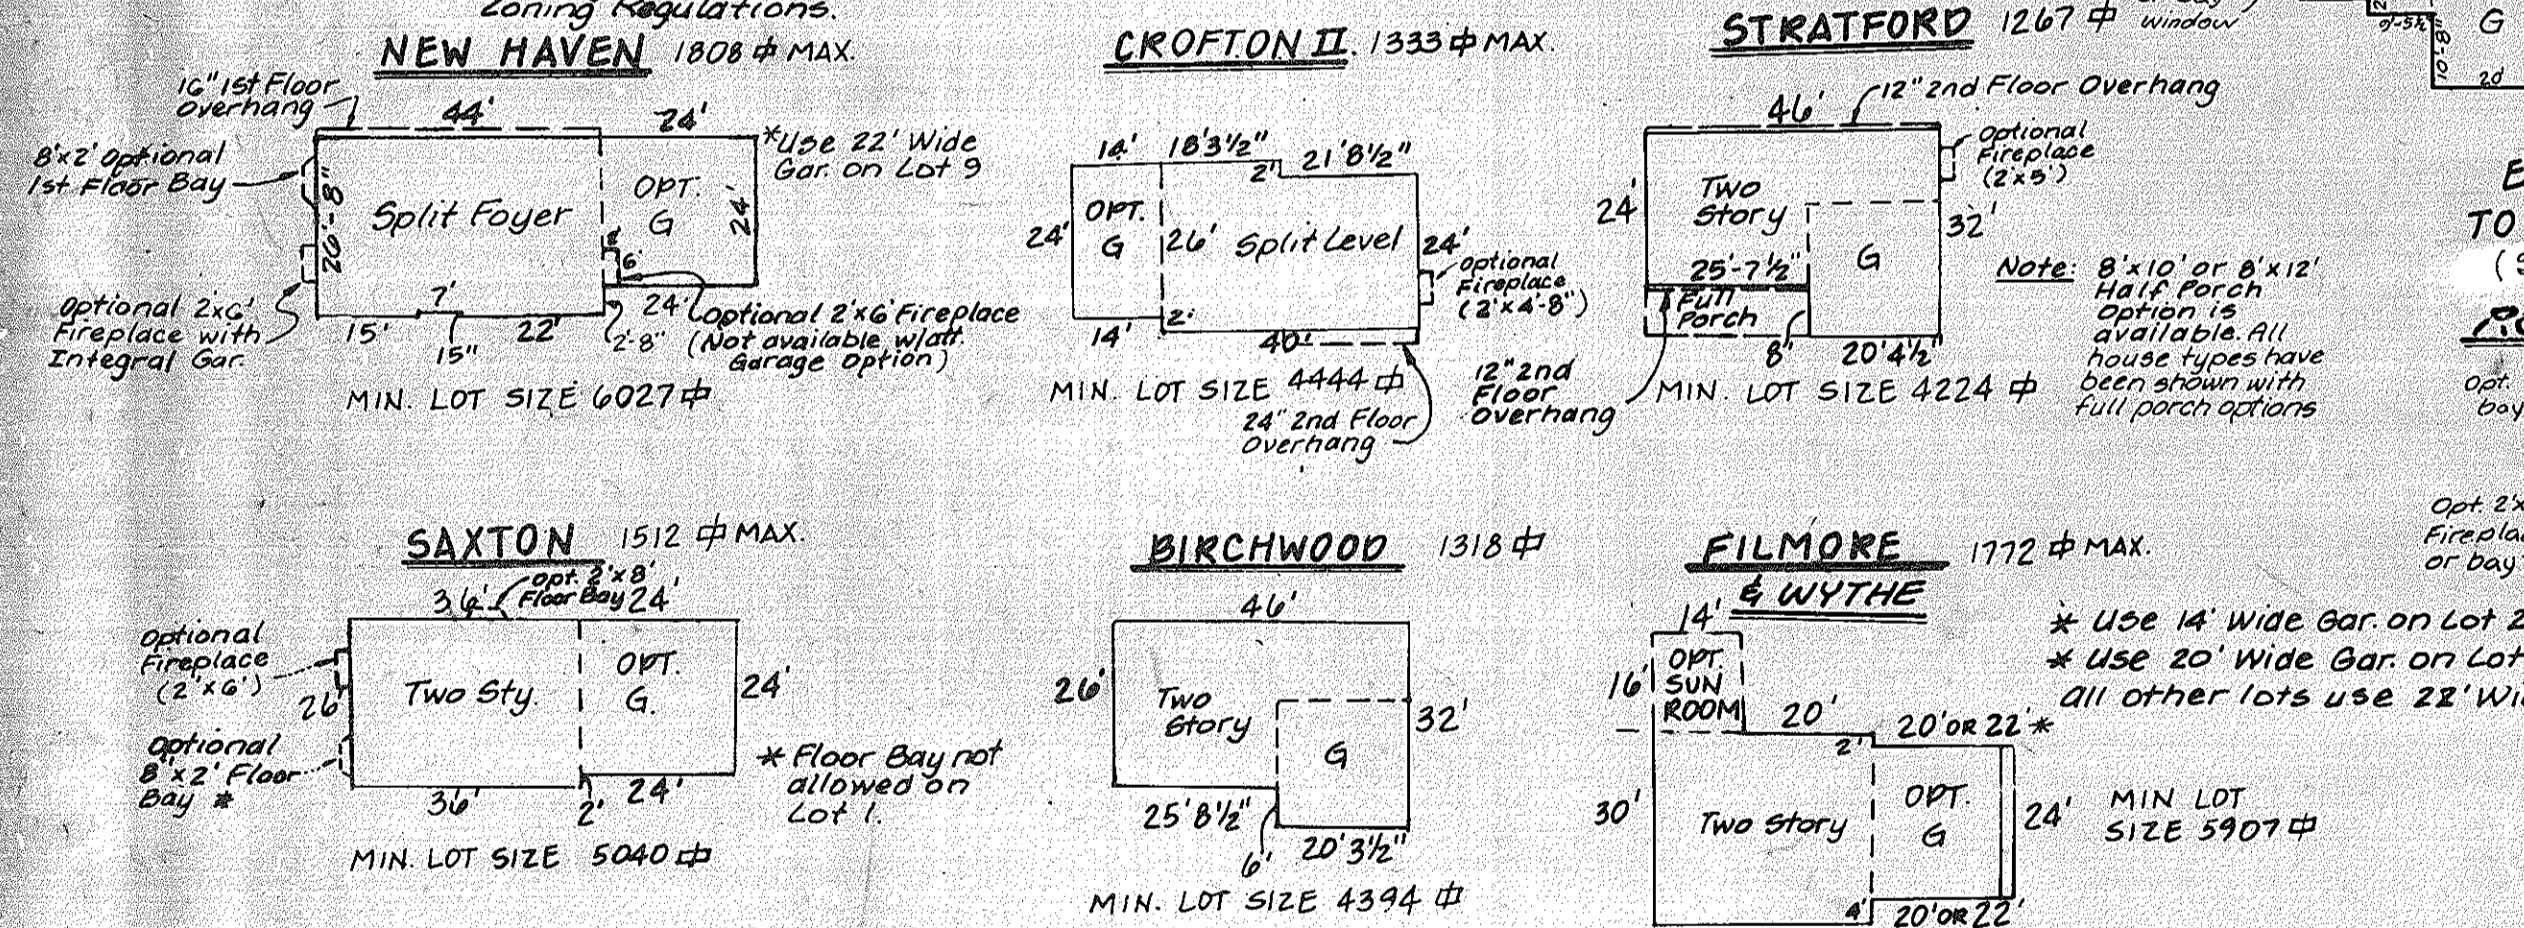 Zoning Regulations.
NEW HAVEN 1808 ⏀ MAX.
16" 1st Floor
Overhang
44'
24'
*Use 22' Wide
Gar. on Lot 9
8'x2' Optional
1st Floor Bay
26'-8"
Split Foyer
OPT.
G
24'
2'
6'
Optional 2x6'
Fireplace with
Integral Gar.
15'
7'
15"
22'
2'-8"
24'
Optional 2'x6' Fireplace
(Not available w/att.
Garage option)
MIN. LOT SIZE 6027 ⏀
CROFTON II. 1333 ⏀ MAX.
14'
18'3½"
2'
21'8½"
24'
OPT.
G
26'
Split Level
24'
Optional
Fireplace
(2'x4'-8")
14'
2'
40'
MIN. LOT SIZE 4444 ⏀
24" 2nd Floor
Overhang
STRATFORD 1267 ⏀
window
46'
12" 2nd Floor Overhang
Optional
Fireplace
(2'x5')
24'
Two
Story
32'
G
25'-7½"
Full
Porch
8'
20'4½"
12" 2nd
Floor
Overhang
MIN. LOT SIZE 4224 ⏀
Note: 8'x10' or 8'x12'
Half Porch
Option is
available. All
house types have
been shown with
full porch options
9'-5½
G
10'-8"
2d
E
TO
(S
Opt.
bay
SAXTON 1512 ⏀ MAX.
opt. 2'x8'
Floor Bay
36'
24'
Optional
Fireplace
(2'x6')
26'
Two Sty.
OPT.
G.
24'
Optional
8'x2' Floor
Bay *
36'
2'
24'
* Floor Bay not
allowed on
Lot 1.
MIN. LOT SIZE 5040 ⏀
BIRCHWOOD 1318 ⏀
46'
26'
Two
Story
G
32'
25'8½"
6'
20'3½"
MIN. LOT SIZE 4394 ⏀
FILMORE 1772 ⏀ MAX.
& WYTHE
14'
OPT.
SUN
ROOM
16'
20'
2'
20' OR 22'*
30'
Two Story
OPT.
G
24'
4'
20' OR 22'
MIN LOT
SIZE 5907 ⏀
* Use 14' Wide Gar. on Lot 2
* Use 20' Wide Gar. on Lot
all other lots use 22' Wi
Opt. 2'x
Firepla
or bay